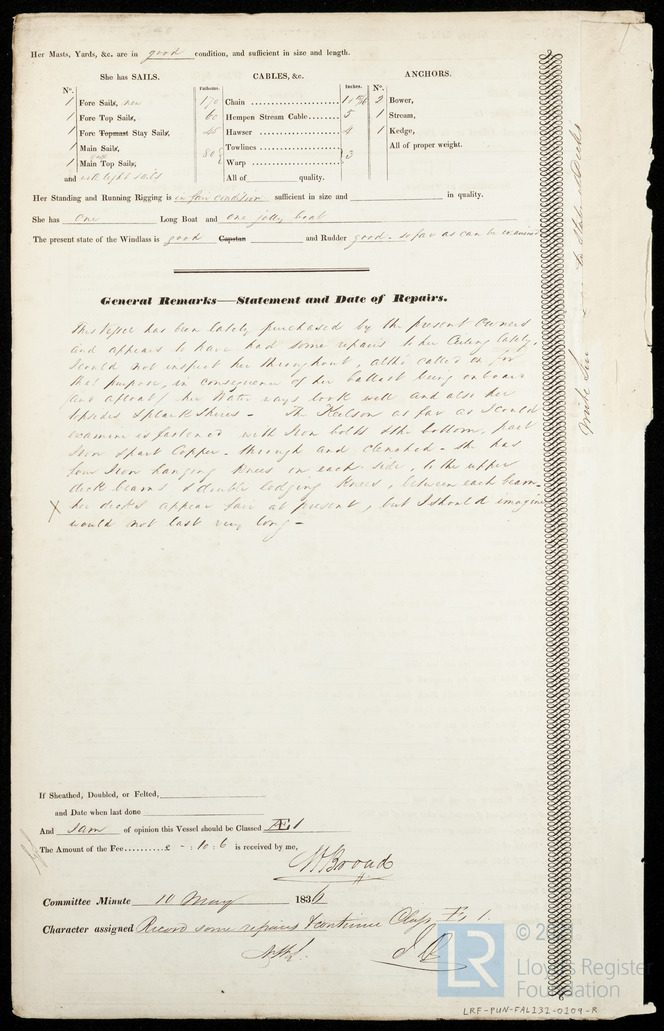 Her Masts, Yards, &c. are in good condition, and sufficient in size and length.
She has SAILS. CABLES, &c. ANCHORS.
No. Fathoms. Inches. No.
1 Fore Sails, 170 Chain 2 Bower,
1 Fore Top Sails, 60 Hempen Stream Cable 5 1 Stream,
1 Fore Topmast Stay Sails, 45 Hawser 4 1 Kedge,
1 Main Sails, 80 Towlines 3 All of proper weight.
1 Main Top Sails, Warp
and with light sails All of quality.
Her Standing and Running Rigging is in fair condition sufficient in size and in quality.
She has One Long Boat and One jolly boat
The present state of the Windlass is good Capstan and Rudder good - so far as can be examined
General Remarks—Statement and Date of Repairs.
This vessel has been lately purchased by the present Owners
and appears to have had some repairs to her Ceiling lately,
I could not inspect her throughout, altho' called on for
that purpose, in consequence of her ballast being onboard
and afloat / her Water ways look well and also her
topsides & plank sheers - The Keelson as far as I could
examine is fastened with Iron bolts & the bottom, part
Iron & part Copper - through and clenched - She has
four Iron hanging Knees in each side, to the upper
deck beams & double lodging Knees, between each beam -
X her decks appear fair at present, but I should imagine
would not last very long -
If Sheathed, Doubled, or Felted,
and Date when last done
And I am of opinion this Vessel should be Classed Æ 1
The Amount of the Fee..........£ - : 10 : 6 is received by me,
W Broad
Committee Minute 10 May 1836
Character assigned Record some repairs & continue Class Æ 1.
LR
©
Lloyd's Register
Foundation
LRF-PUN-FAL131-0109-R